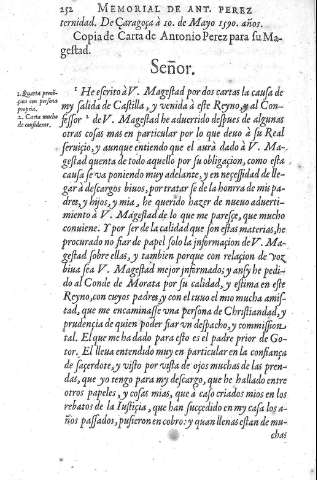 252 MEMORIAL DE ANT. PEREZ
ternidad. De Çaragoça à 10. de Mayo 1590. años.
Copia de Carta de Antonio Perez para su Ma-
gestad.
Señor.
1. Quarta prendi-
çion con persona
propria.
2. Carta mucho
de considerar.
¹ He escrito à V. Magestad por dos cartas la causa de
my salida de Castilla, y venida à este Reyno, y al Con-
fessor ² de V. Magestad he aduertido despues de algunas
otras cosas mas en particular por lo que deuo à su Real
seruiçio, y aunque entiendo que el aurà dado à V. Ma-
gestad quenta de todo aquello por su obligaçion, como esta
causa se va poniendo muy adelante, y en neçessidad de lle-
gar à descargos biuos, por tratar se de la honrra de mis pa-
dres, y hijos, y mia, he querido hazer de nueuo aduerti-
miento à V. Magestad de lo que me paresçe, que mucho
conuiene. Y por ser de la calidad que son estas materias, he
procurado no fiar de papel solo la informaçion de V. Ma-
gestad sobre ellas, y tambien porque con relaçion de voz
biua sea V. Magestad mejor informado; y ansy he pedi-
do al Conde de Morata por su calidad, y estima en este
Reyno, con cuyos padres, y con el tuuo el mio mucha amis-
tad, que me encaminasse vna persona de Christiandad, y
prudençia de quien poder fiar vn despacho, y commission
tal. El que me ha dado para esto es el padre prior de Go-
tor. El lleua entendido muy en particular en la confiança
de saçerdote, y visto por vista de ojos muchas de las pren-
das, que yo tengo para my descargo, que he hallado entre
otros papeles, y cosas mias, que à caso criados mios en los
rebatos de la Iustiçia, que han succedido en my casa los a-
ños passados, pusieron en cobro: y quan llenas estan de mu-
chas